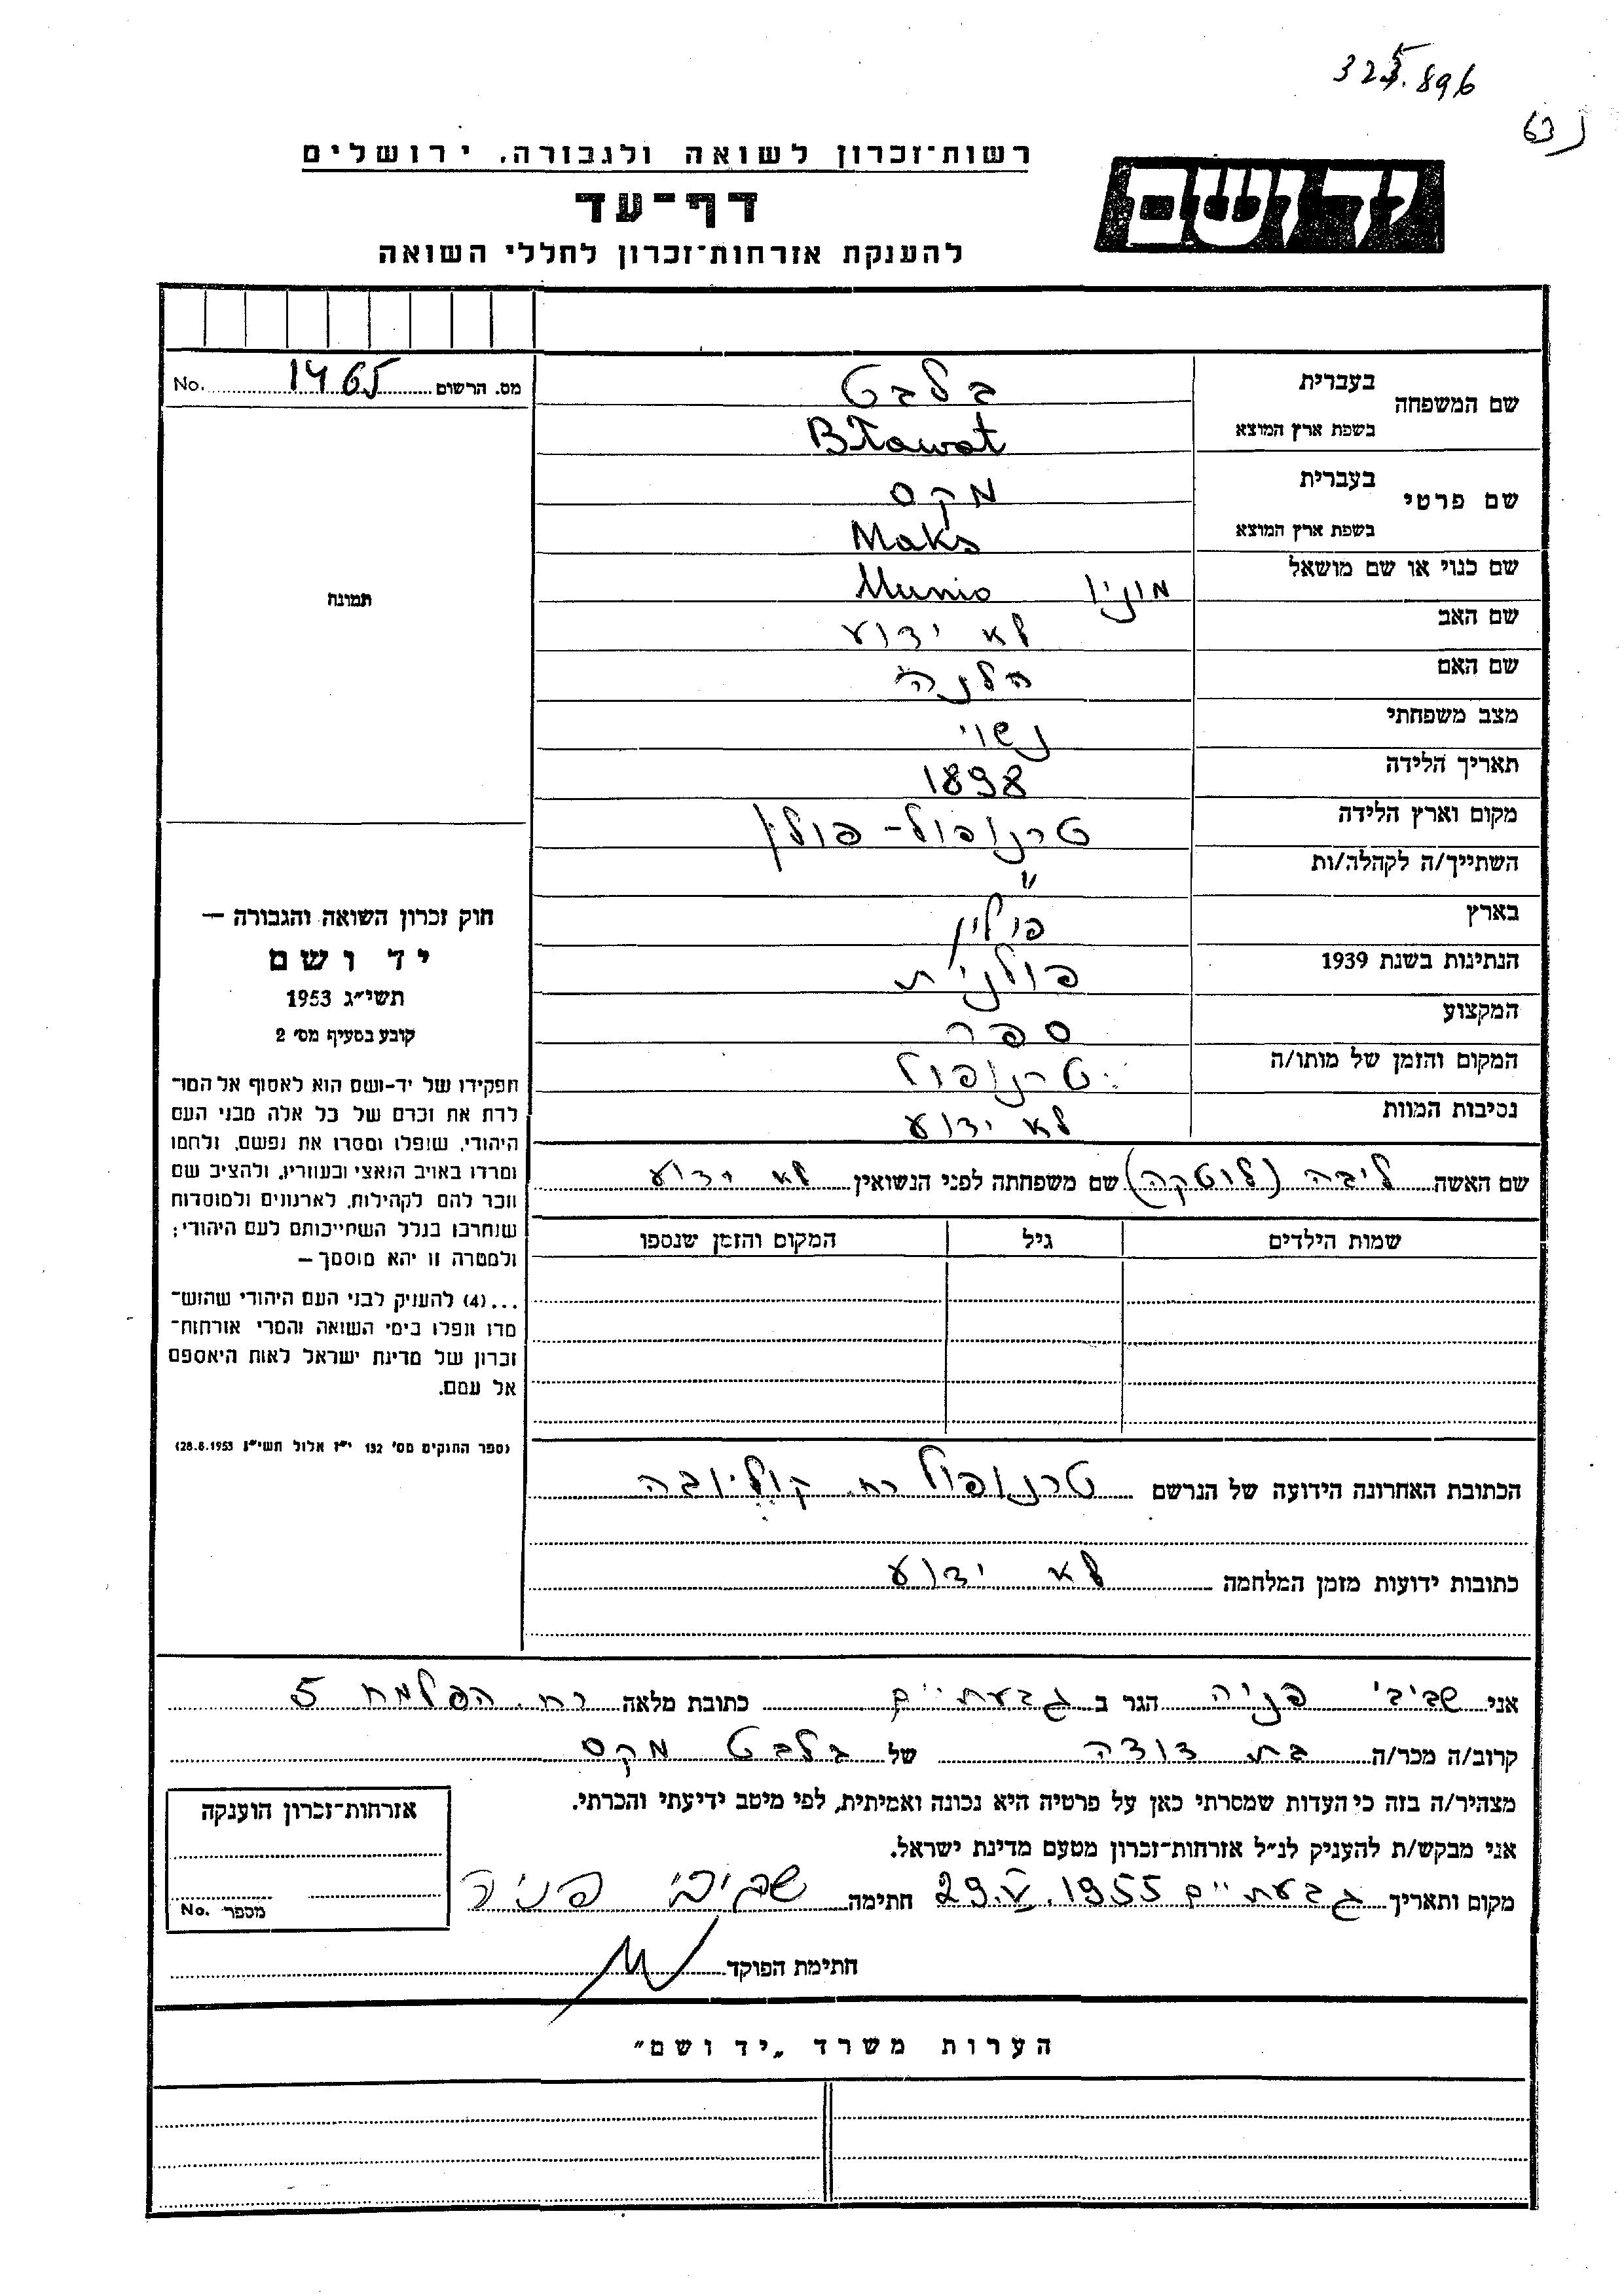 325.896
63
רשות־זכרון לשואה ולגבורה. ירושלים
יד ושם
דף־עד
להענקת אזרחות־זכרון לחללי השואה
מס. הרשום 1465 No.
שם המשפחה
בעברית בלבט
בשפת ארץ המוצא Bławat
שם פרטי
בעברית מקס
בשפת ארץ המוצא Maks
שם כנוי או שם מושאל מוניו Munio
שם האב לא ידוע
שם האם הלנה
מצב משפחתי נשוי
תאריך הלידה 1898
מקום וארץ הלידה טרנופול - פולין
השתייך/ה לקהלה/ות "
בארץ פולין
הנתינות בשנת 1939 פולנית
המקצוע ספר
המקום והזמן של מותו/ה טרנופול
נסיבות המוות לא ידוע
שם האשה ליבה (לוטקה) שם משפחתה לפני הנשואין לא ידוע
שמות הילדים גיל המקום והזמן שנספו
הכתובת האחרונה הידועה של הנרשם טרנופול רח.
כתובות ידועות מזמן המלחמה לא ידוע
תמונה
חוק זכרון השואה והגבורה —
יד ושם
תשי״ג 1953
קובע בסעיף מס׳ 2
תפקידו של יד-ושם הוא לאסוף אל המו־
לדת את זכרם של כל אלה מבני העם
היהודי, שנפלו ומסרו את נפשם, נלחמו
ומרדו באויב הנאצי ובעוזריו, ולהציב שם
וזכר להם לקהילות, לארגונים ולמוסדות
שנחרבו בגלל השתייכותם לעם היהודי;
ולמטרה זו יהא מוסמך —
...(4) להעניק לבני העם היהודי שהוש־
מדו ונפלו בימי השואה והמרי אזרחות־
זכרון של מדינת ישראל לאות היאספם
אל עמם.
(ספר החוקים מס׳ 132 י״ז אלול תשי״ג 28.8.1953)
אני שביבי פניה הגר ב גבעתיים כתובת מלאה רח. הפלמח 5
קרוב/ה מכר/ה בת דודה של בלבט מקס
מצהיר/ה בזה כי העדות שמסרתי כאן על פרטיה היא נכונה ואמיתית, לפי מיטב ידיעתי והכרתי.
אני מבקש/ת להעניק לנ״ל אזרחות־זכרון מטעם מדינת ישראל.
מקום ותאריך גבעתיים 29.V.1955 חתימה שביבי פניה
חתימת הפוקד
אזרחות־זכרון הוענקה
מספר No.
הערות משרד „יד ושם״